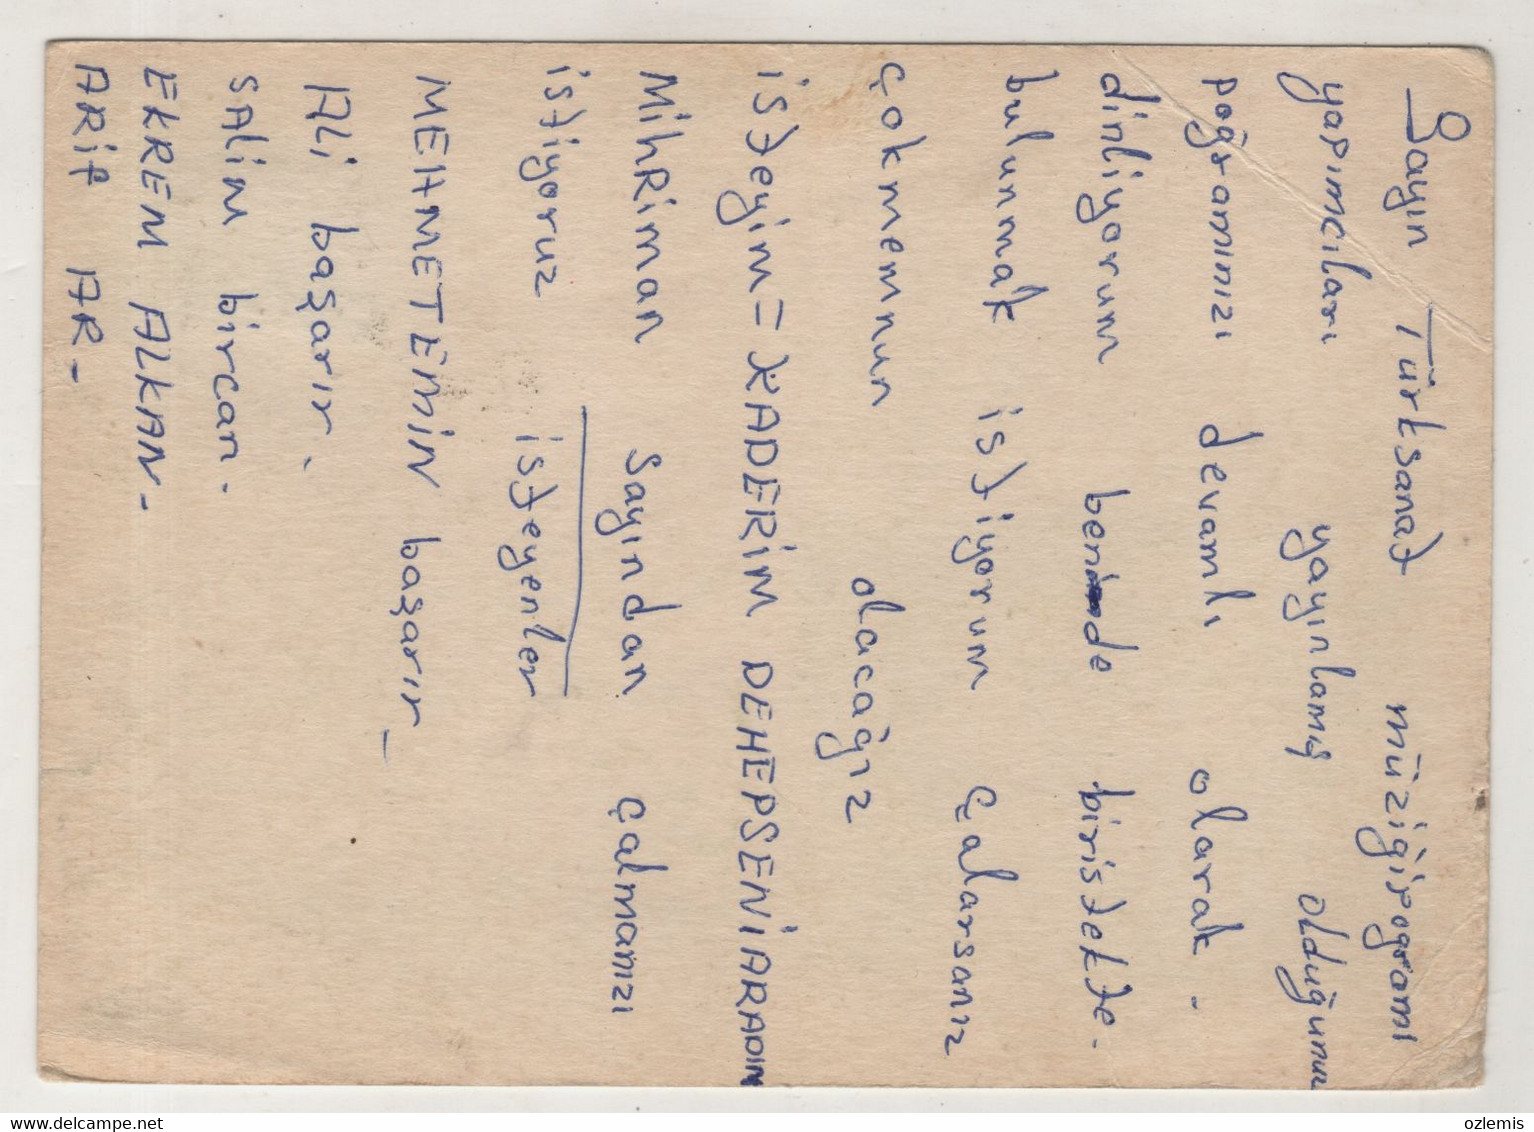 Sayın Türksanat müziğipogramı
yapımcıları yayınlamış olduğunuz
poğramınızı devamlı olarak -
dinliyorum bende biristekte -
bulunmak istiyorum çalarsanız
çokmemnun olacağız
isteyim = KADERİM DEHEPSENİARADIM
MihRiman Sayından çalmanızı
istiyoruz isteyenler
MEHMETEMİN başarır -
Ali başarır.
SALİM bircan.
EKREM ALKAN -
ARİf AR -
ozlemis